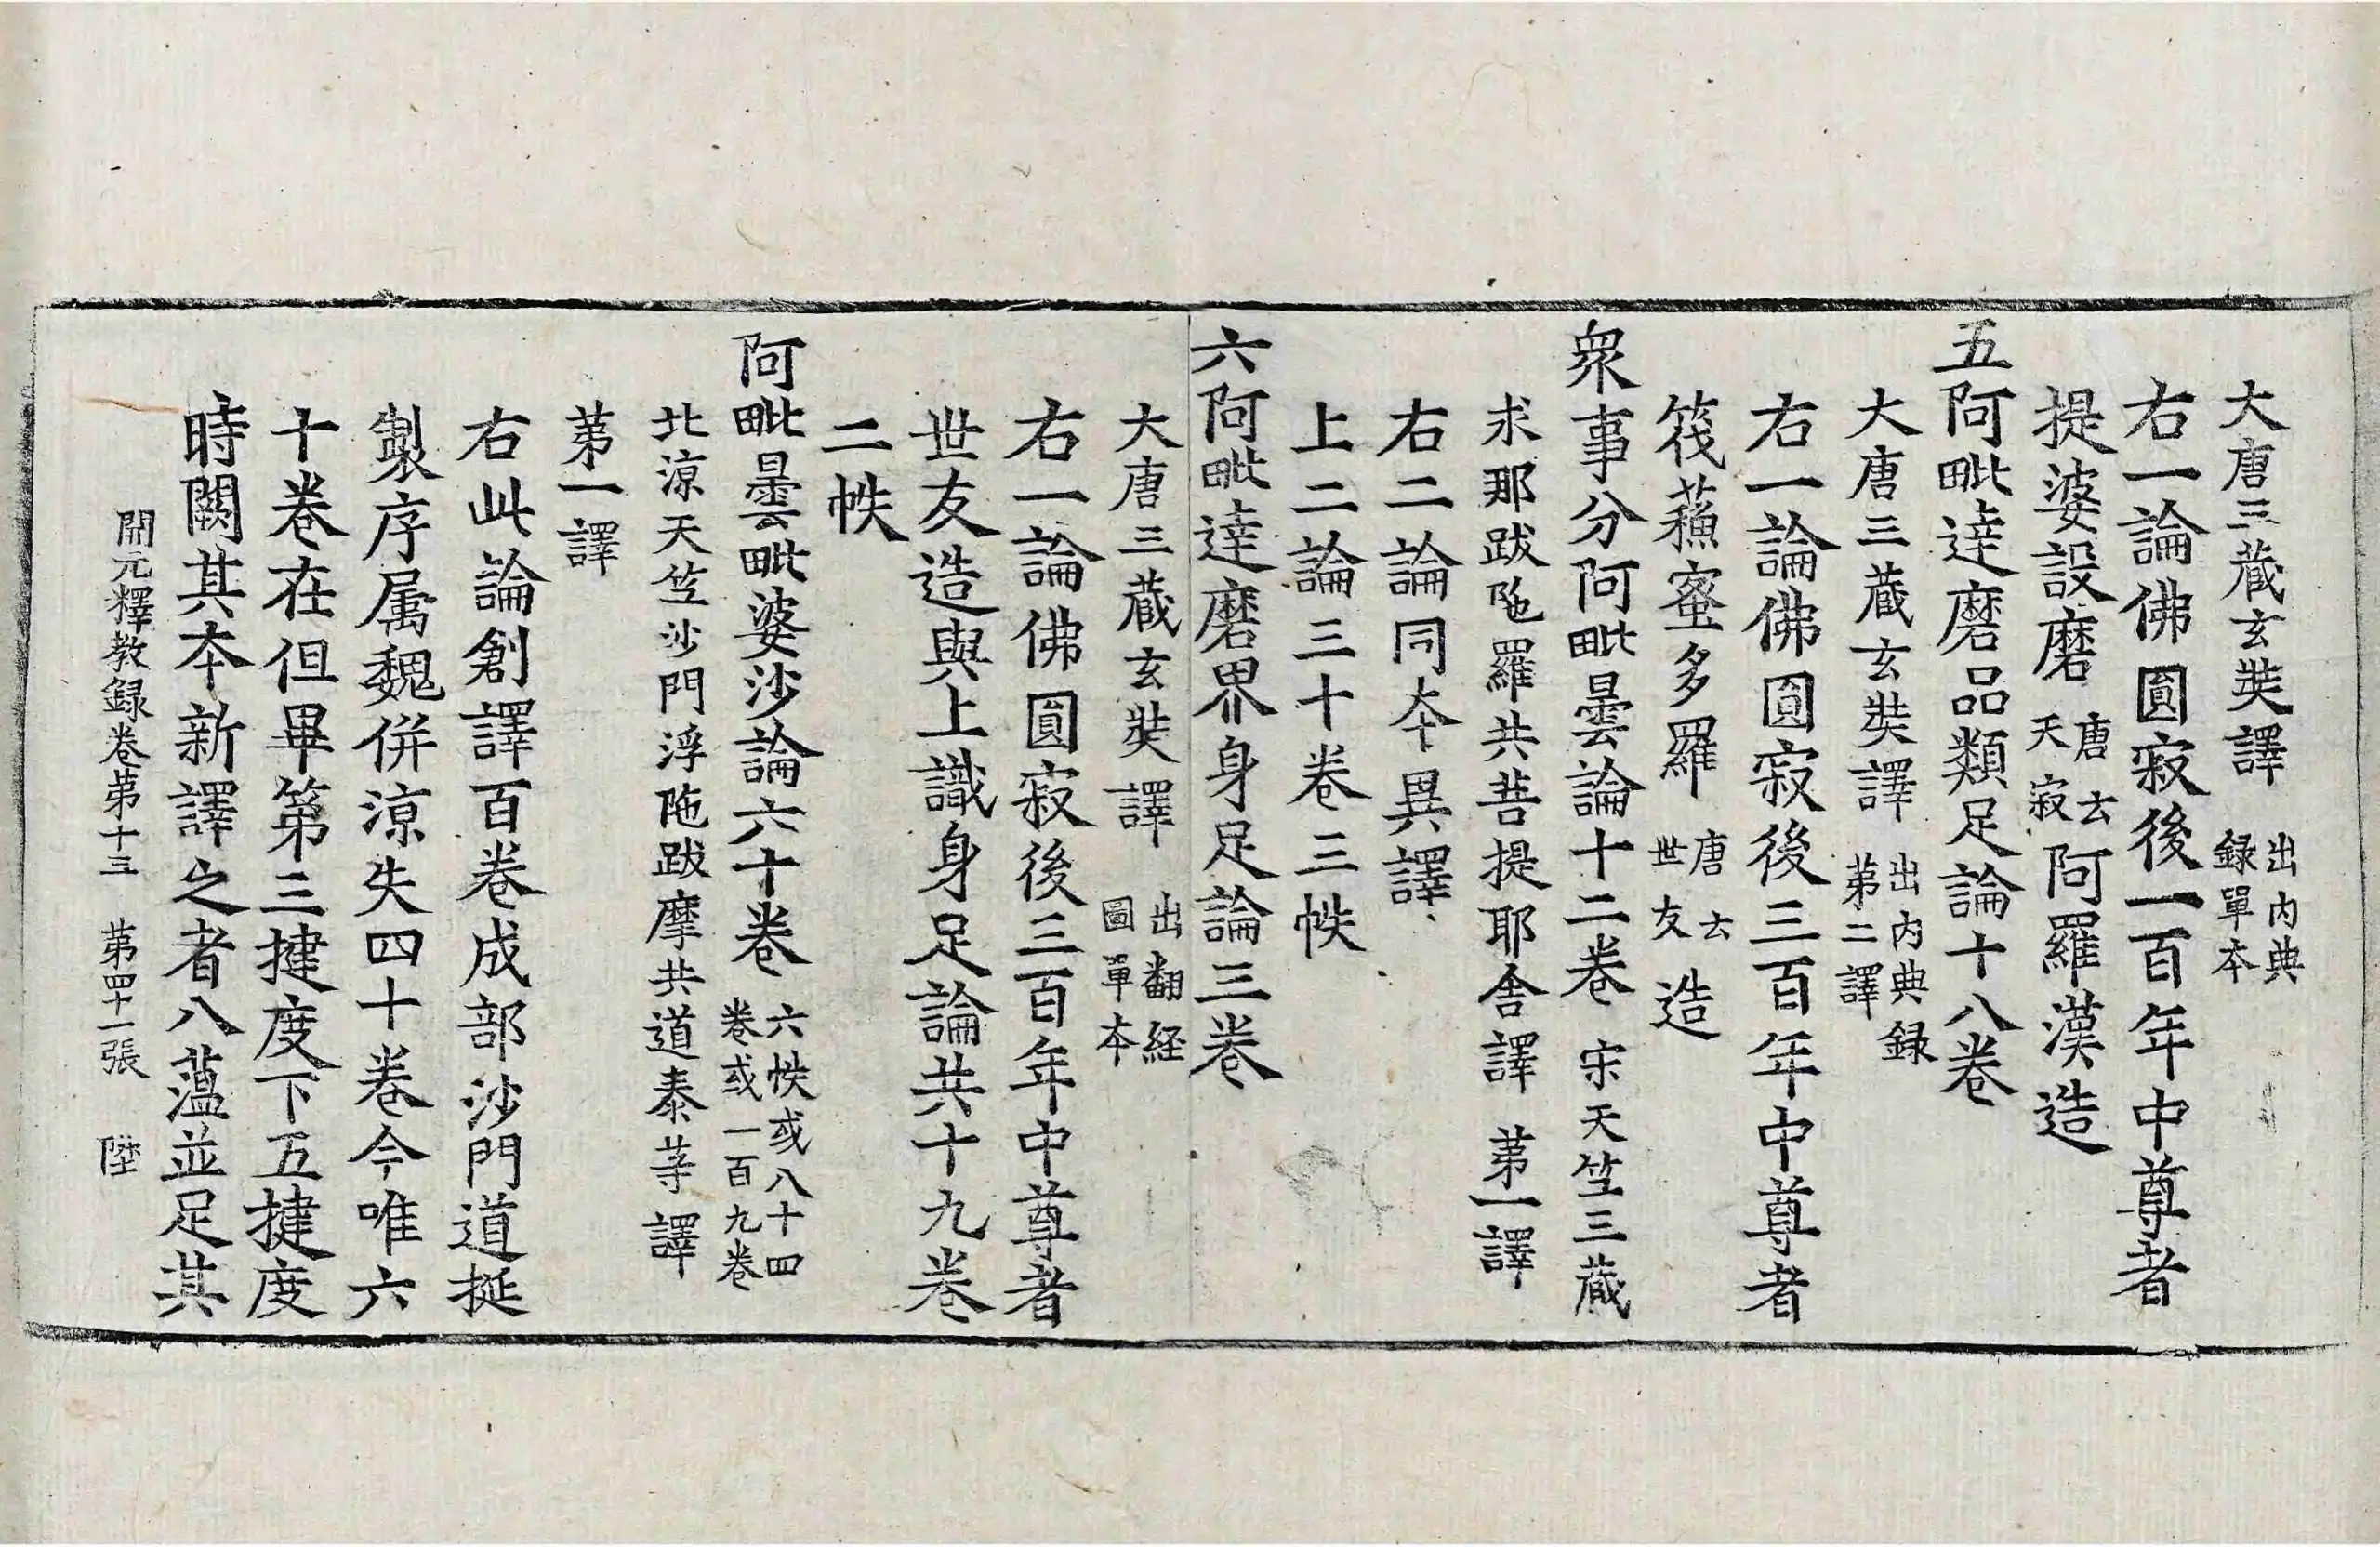 大唐三藏玄奘譯出內典錄單本
右一論佛圓寂後一百年中尊者
提婆設磨唐云天寂阿羅漢造
五阿毗達磨品類足論十八卷
大唐三藏玄奘譯出內典錄苐二譯
右一論佛圓寂後三百年中尊者
筏蘓蜜多羅唐云世友造
衆事分阿毗曇論十二卷宋天竺三藏
求那跋陁羅共菩提耶舍譯苐一譯
右二論同夲異譯
上二論三十卷三帙
六阿毗達磨界身足論三卷
大唐三藏玄奘譯出翻経圖單夲
右一論佛圓寂後三百年中尊者
世友造與上識身足論共十九卷
二帙
阿毗曇毗婆沙論六十卷六帙或八十四卷或一百九卷
北涼天竺沙門浮陁跋摩共道泰䓁譯
苐一譯
右此論創譯百卷成部沙門道挻
製序属魏併涼失四十卷今唯六
十卷在但畢第三揵度下五揵度
時闕其夲新譯之者八薀並足其
開元釋教録卷苐十三　苐四十一張　陞